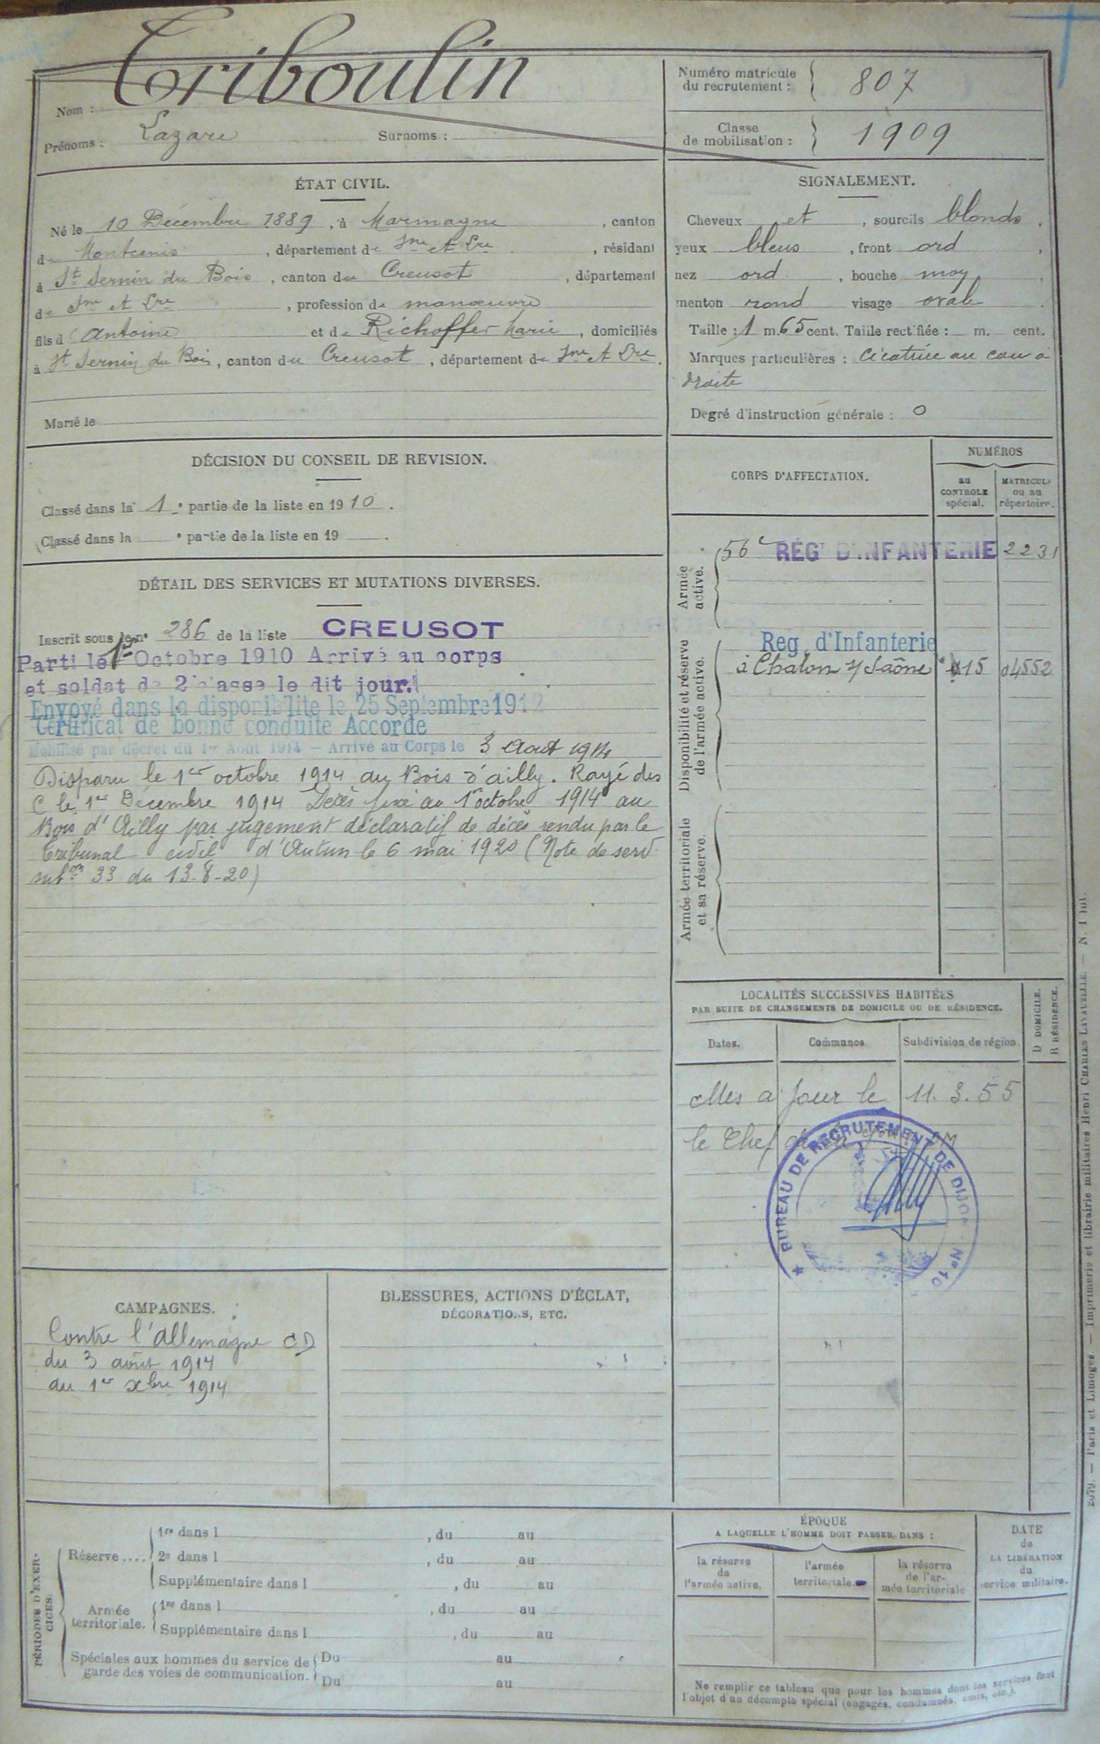 Nom : Triboulin
Prénoms : Lazare Surnoms :
Numéro matricule
du recrutement : 807
Classe
de mobilisation : 1909
ÉTAT CIVIL.
Né le 10 Décembre 1889, à Marmagne, canton
de Montcenis, département de Sne et Lre, résidant
à St Sernin du Bois, canton du Creusot, département
de Sne et Lre, profession de manœuvre
fils d'Antoine et de Richoffer Marie, domiciliés
à St Sernin du Bois, canton du Creusot, département de Sne et Lre.
Marié le
SIGNALEMENT.
Cheveux et, sourcils blonds,
yeux bleus, front ord,
nez ord, bouche moy,
menton rond visage ovale
Taille : 1 m. 65 cent. Taille rectifiée : m. cent.
Marques particulières : Cicatrice au cou à
droite
Degré d'instruction générale : 0
DÉCISION DU CONSEIL DE REVISION.
Classé dans la 1e partie de la liste en 1910.
Classé dans la e partie de la liste en 19 .
DÉTAIL DES SERVICES ET MUTATIONS DIVERSES.
Inscrit sous le n° 286 de la liste CREUSOT
Parti le 1er Octobre 1910 Arrivé au corps
et soldat de 2e classe le dit jour.
Envoyé dans la disponibilité le 25 Septembre 1912
Certificat de bonne conduite Accordé
Mobilisé par décret du 1er Août 1914 – Arrivé au Corps le 3 Août 1914
Disparu le 1er octobre 1914 au Bois d'ailly. Rayé des
C le 1er Décembre 1914 Décès fixé au 1er octobre 1914 au
Bois d'Ailly par jugement déclaratif de décès rendu par le
Tribunal civil d'Autun le 6 mai 1920 (Note de serv
33 du 13-8-20)
CORPS D'AFFECTATION.
NUMÉROS
au
CONTROLE
spécial.
MATRICULE
ou au
répertoire.
Armée
active.
56e RÉGt D'INFANTERIE 2231
Disponibilité et réserve
de l'armée active.
Reg. d'Infanterie
à Chalon s/ Saône 15 04552
Armée territoriale
et sa réserve.
LOCALITÉS SUCCESSIVES HABITÉES
PAR SUITE DE CHANGEMENTS DE DOMICILE OU DE RÉSIDENCE.
D DOMICILE.
R RÉSIDENCE.
Dates. Communes. Subdivision de région.
Mis a jour le 11.3.55
le Chef
BUREAU DE RECRUTEMENT DE DIJON N° 10
CAMPAGNES.
Contre l'allemagne CD
du 3 août 1914
au 1er xbre 1914
BLESSURES, ACTIONS D'ÉCLAT,
DÉCORATIONS, ETC.
PÉRIODES D'EXERCICES.
Réserve ....
1re dans l , du au
2e dans l , du au
Supplémentaire dans l , du au
Armée
territoriale.
1re dans l , du au
Supplémentaire dans l , du au
Spéciales aux hommes du service de
garde des voies de communication.
Du au
Du au
ÉPOQUE
A LAQUELLE L'HOMME DOIT PASSER DANS :
la réserve
de
l'armée active.
l'armée
territoriale.
la réserve
de l'armée territoriale
DATE
de
LA LIBÉRATION
du
service militaire.
Ne remplir ce tableau que pour les hommes dont les services font
l'objet d'un décompte spécial (engagés, condamnés, omis, etc.).
2079. — Paris et Limoges. — Imprimerie et librairie militaires Henri CHARLES LAVAUZELLE. — N. 1 int.